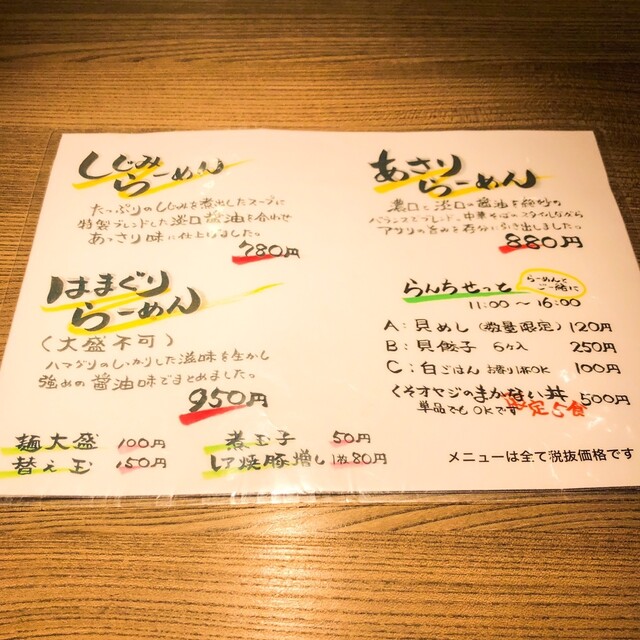 しじみ
らーめん
たっぷりのしじみを煮出したスープに
特製ブレンドした淡口醤油を合わせ
あっさり味に仕上げました。
780円
はまぐり
らーめん
(大盛不可)
ハマグリのしっかりした滋味を生かし
強めの醤油味でまとめました。
950円
麺大盛 100円
替え玉 150円
煮玉子 50円
レア焼豚増し 1枚80円
あさり
らーめん
濃口と淡口の醤油を絶妙な
バランスでブレンド。中華そばのスタイルながら
アサリの旨みを存分に引き出しました。
880円
らんちせっと
らーめんと
ご一緒に
11:00〜16:00
A:貝めし(数量限定) 120円
B:貝餃子 5ヶ入 250円
C:白ごはん お替り1杯OK 100円
くそオヤジのまかない丼 500円
単品でもOKです 限定5食
メニューは全て税抜価格です